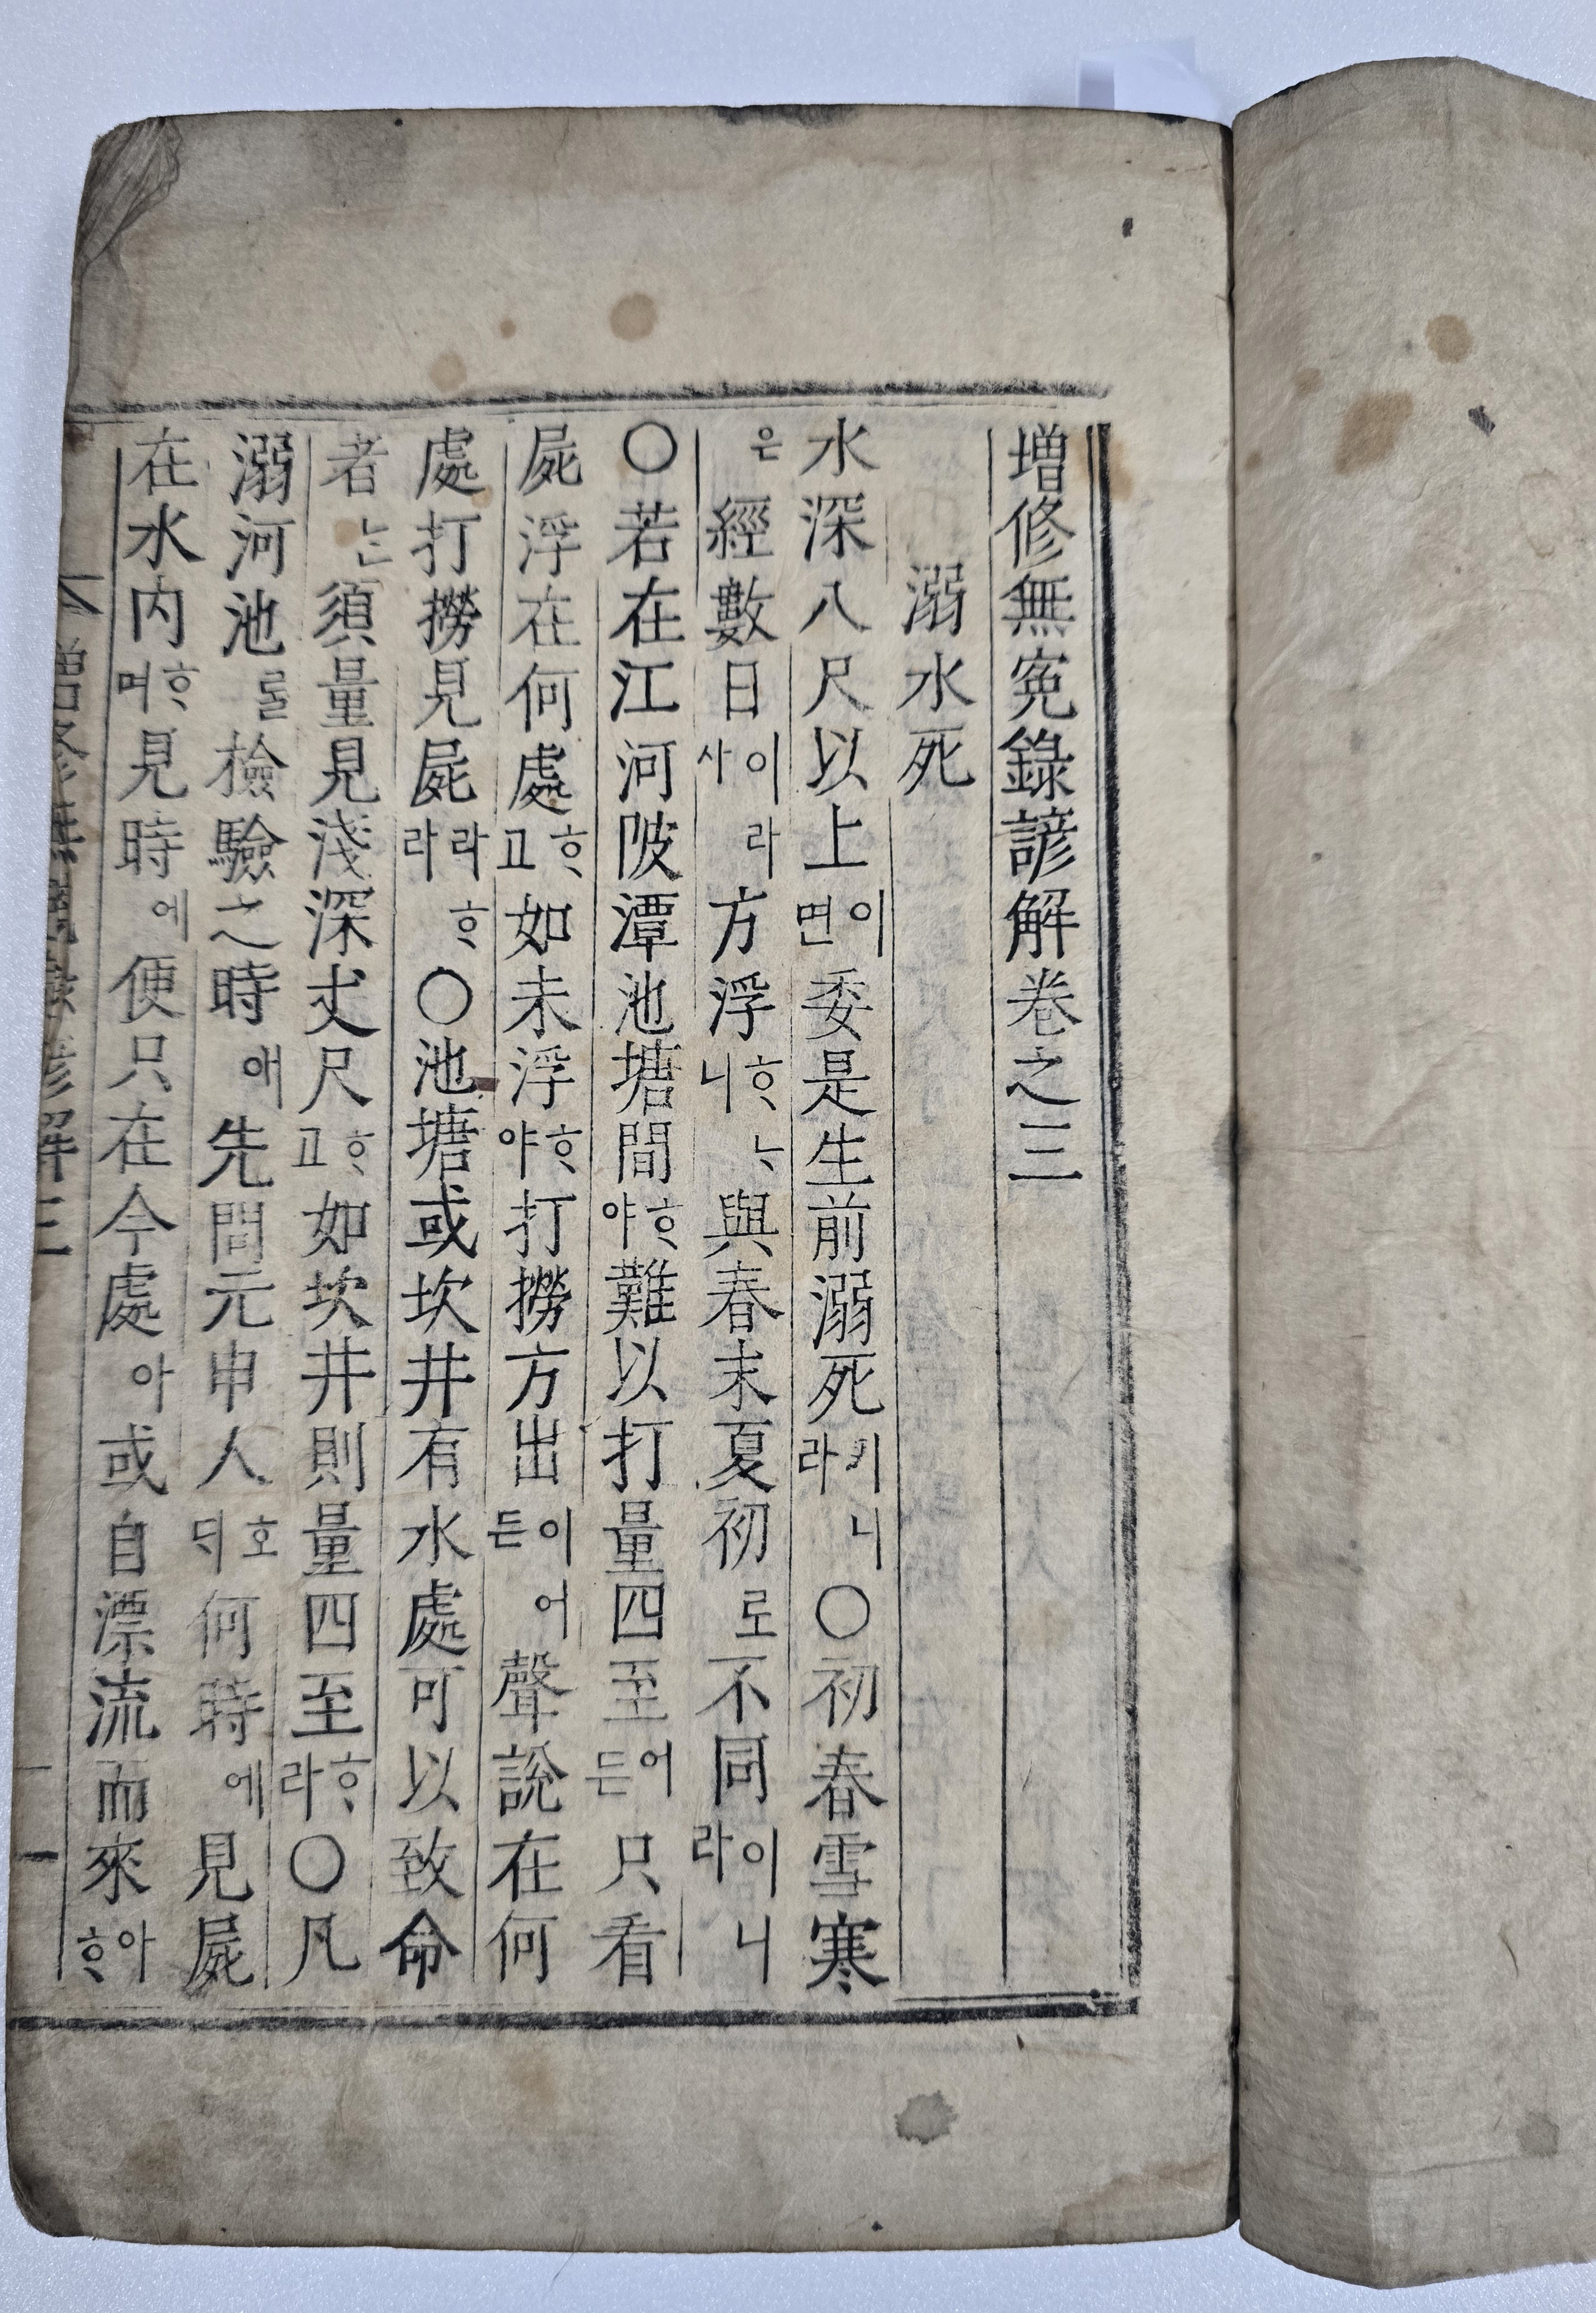 增修無寃錄諺解卷之三
溺水死
水深八尺以上이면委是生前溺死키니라〇初春雪寒
은經數日이라사方浮ᄒᆞᄂᆞ니與春末夏初로不同이니라
〇若在江河陂潭池塘間ᄒᆞ야難以打量四至어든只看
屍浮在何處ᄒᆞ고如未浮ᄒᆞ야打撈方出이어든聲說在何
處打撈見屍라ᄒᆞ라〇池塘或坎井有水處可以致命
者ᄂᆞᆫ須量見淺深丈尺ᄒᆞ고如坎井則量四至ᄒᆞ라〇凡
溺河池ᄅᆞᆯ檢驗之時애先問元申人호ᄃᆡ何時에見屍
在水內ᄒᆞ며見時에便只在今處아或自漂流而來아ᄒᆞ
增修無寃錄諺解三 一